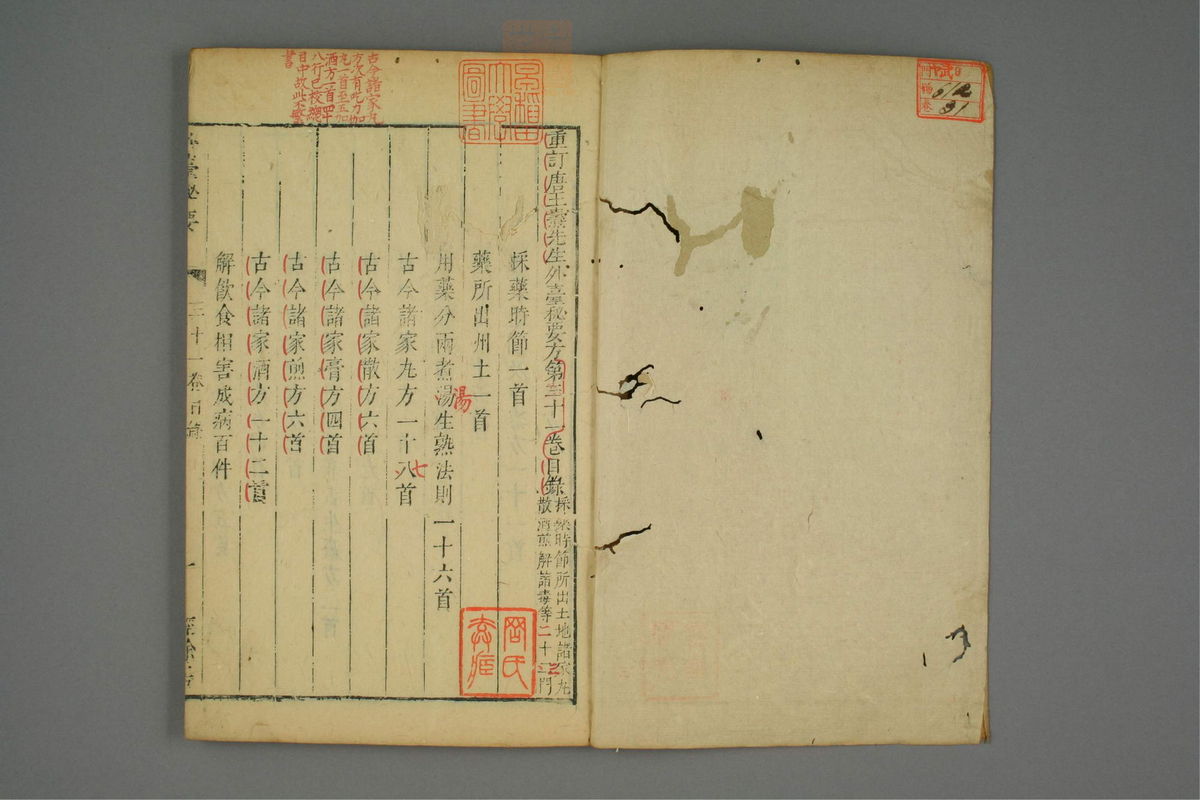 重訂唐王燾先生外臺秘要方第三十一卷目錄
採藥時節所出土地諸家丸
散酒煎解諸毒等二十二門
採藥時節一首
藥所出州土一首
用藥分兩煮湯生熟法則一十六首
湯
古今諸家丸方一十八首
七
古今諸家散方六首
古今諸家膏方四首
古今諸家煎方六首
古今諸家酒方一十二首
解飲食相害成病百件
三十一卷目錄
一
古今諸家丸
方次有此方加
丸一首至五加
酒方一首四十
八行已校
目中故此不
書
早稻田大學圖書